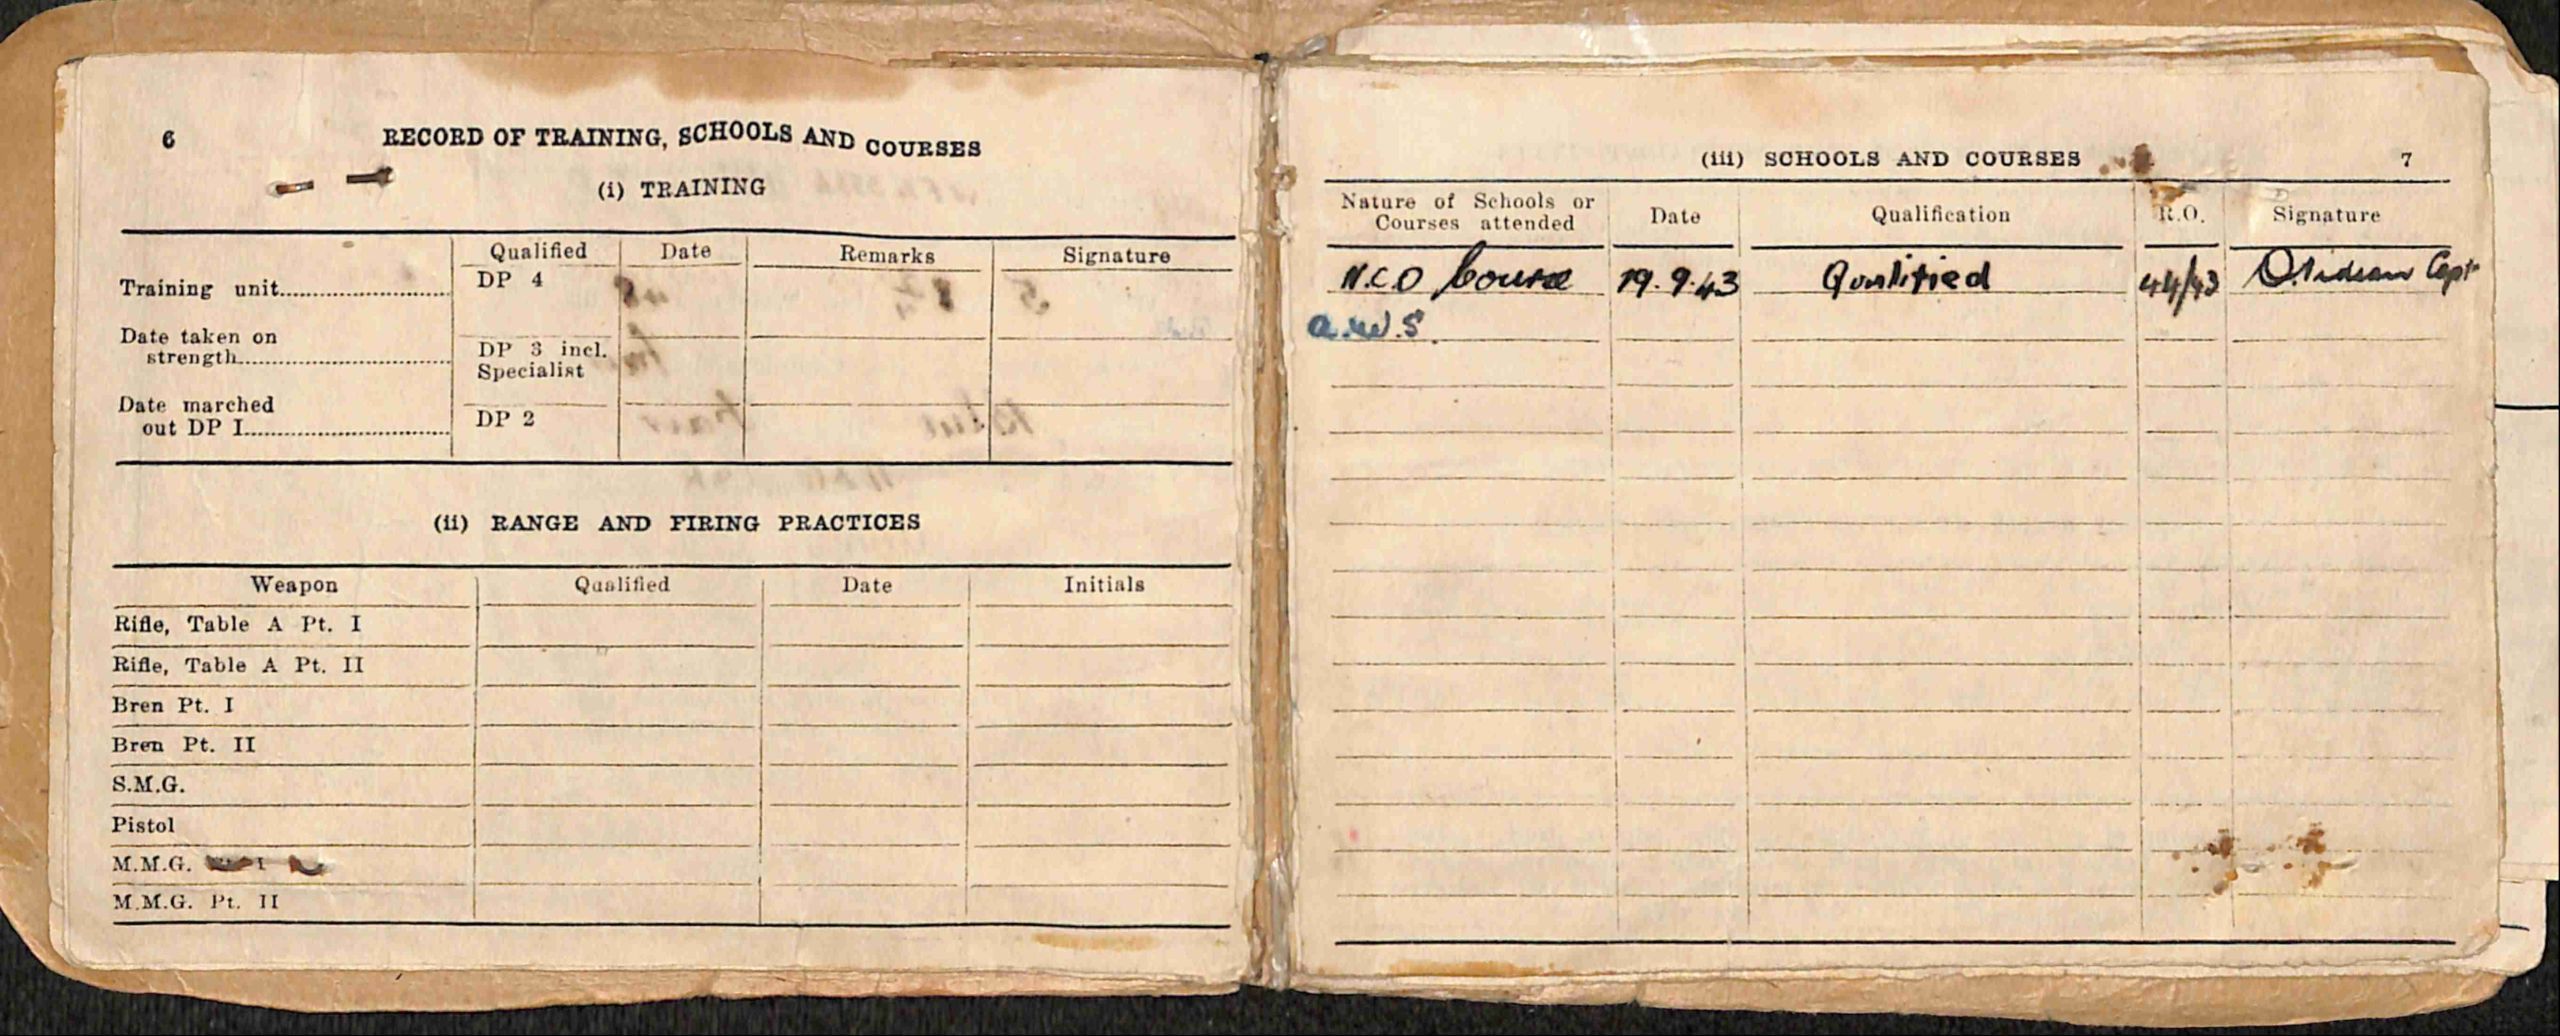 6
RECORD OF TRAINING, SCHOOLS AND COURSES
(i) TRAINING
Qualified Date Remarks Signature
Training unit DP 4
Date taken on
strength
DP 3 incl.
Specialist
Date marched
out DP I
DP 2
(ii) RANGE AND FIRING PRACTICES
Weapon Qualified Date Initials
Rifle, Table A Pt. I
Rifle, Table A Pt. II
Bren Pt. I
Bren Pt. II
S.M.G.
Pistol
M.M.G.
M.M.G. Pt. II
(iii) SCHOOLS AND COURSES 7
Nature of Schools or
Courses attended
Date Qualification R.O. Signature
N.C.O Course 19.9.43 Qualified 44/43 Capt
a.w.s.